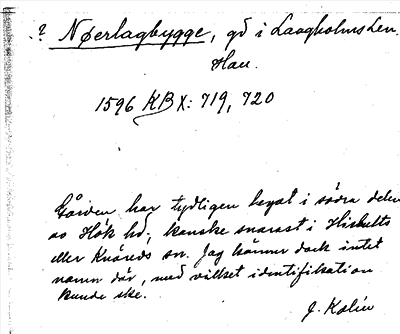 ? Nørlagbygge, gd i Laagholms Len.
Hall.
1596 KB X: 719, 720
Gården har tydligen legat i södra delen
av Höks hd, kanske snarast i Hishults
eller Knäreds sn. Jag känner dock intet
namn där, med vilket identifikation
kunde ske.
J. Kalén